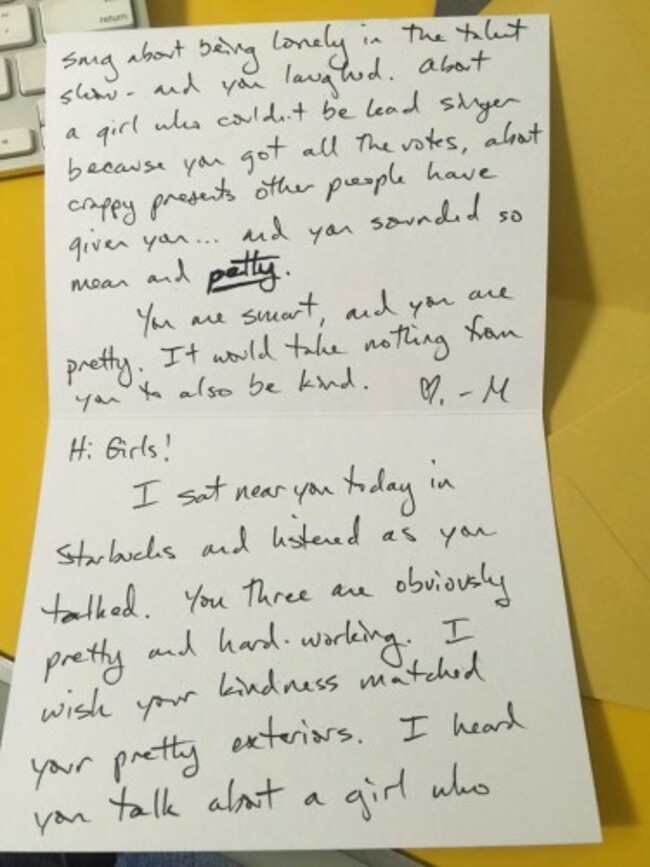 return
sang about being lonely in the talent
show - and you laughed. About
a girl who couldn't be lead singer
because you got all the votes, about
crappy presents other people have
given you... and you sounded so
mean and petty.
You are smart, and you are
pretty. It would take nothing from
you to also be kind. ♡. - M
Hi Girls!
I sat near you today in
Starbucks and listened as you
talked. You three are obviously
pretty and hard-working. I
wish your kindness matched
your pretty exteriors. I heard
you talk about a girl who